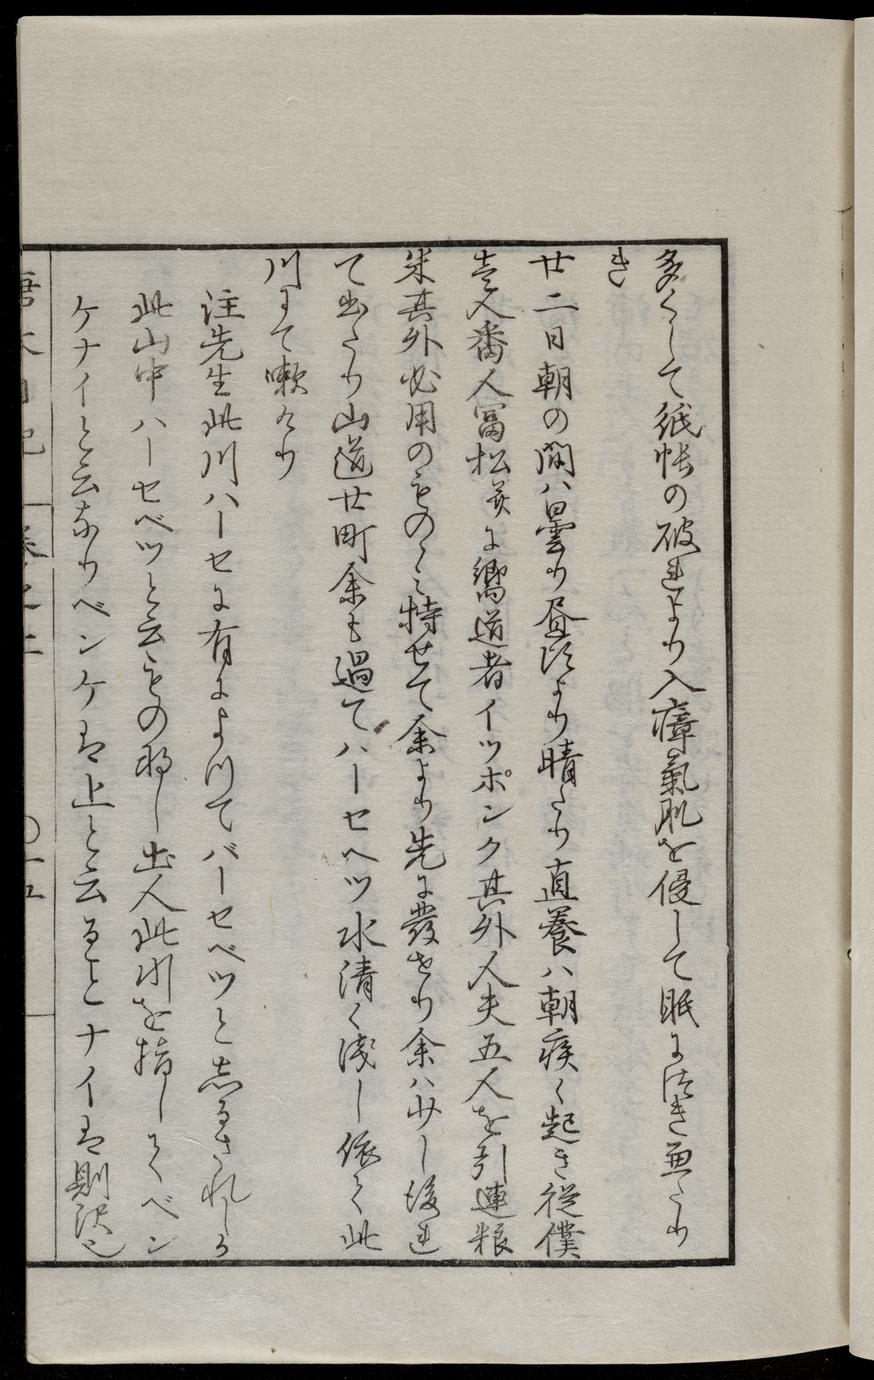 多くして紙帳の破れより入瘴氣肌を侵して眠につき兼たり
き
廿二日朝の間ハ曇り昼頃より晴たり直養ハ朝疾く起き従僕
壱人番人冨松並に嚮道者イツポンク其外人夫五人を引連粮
米其外必用のものゝミ持せて余より先に發せり余ハ少し後れ
て出たり山道廿町余も過てハーセヘツ水清く浅し依て此
川にて嗽たり
注先生此川ハーセに有によつてバーセベツと志るされしか
此山中ハーセベツと云もの我し土人此川を指してベン
ケナイと云なりベンケは上と云ることナイは則沢也
唐太日記 巻之二 〇十五